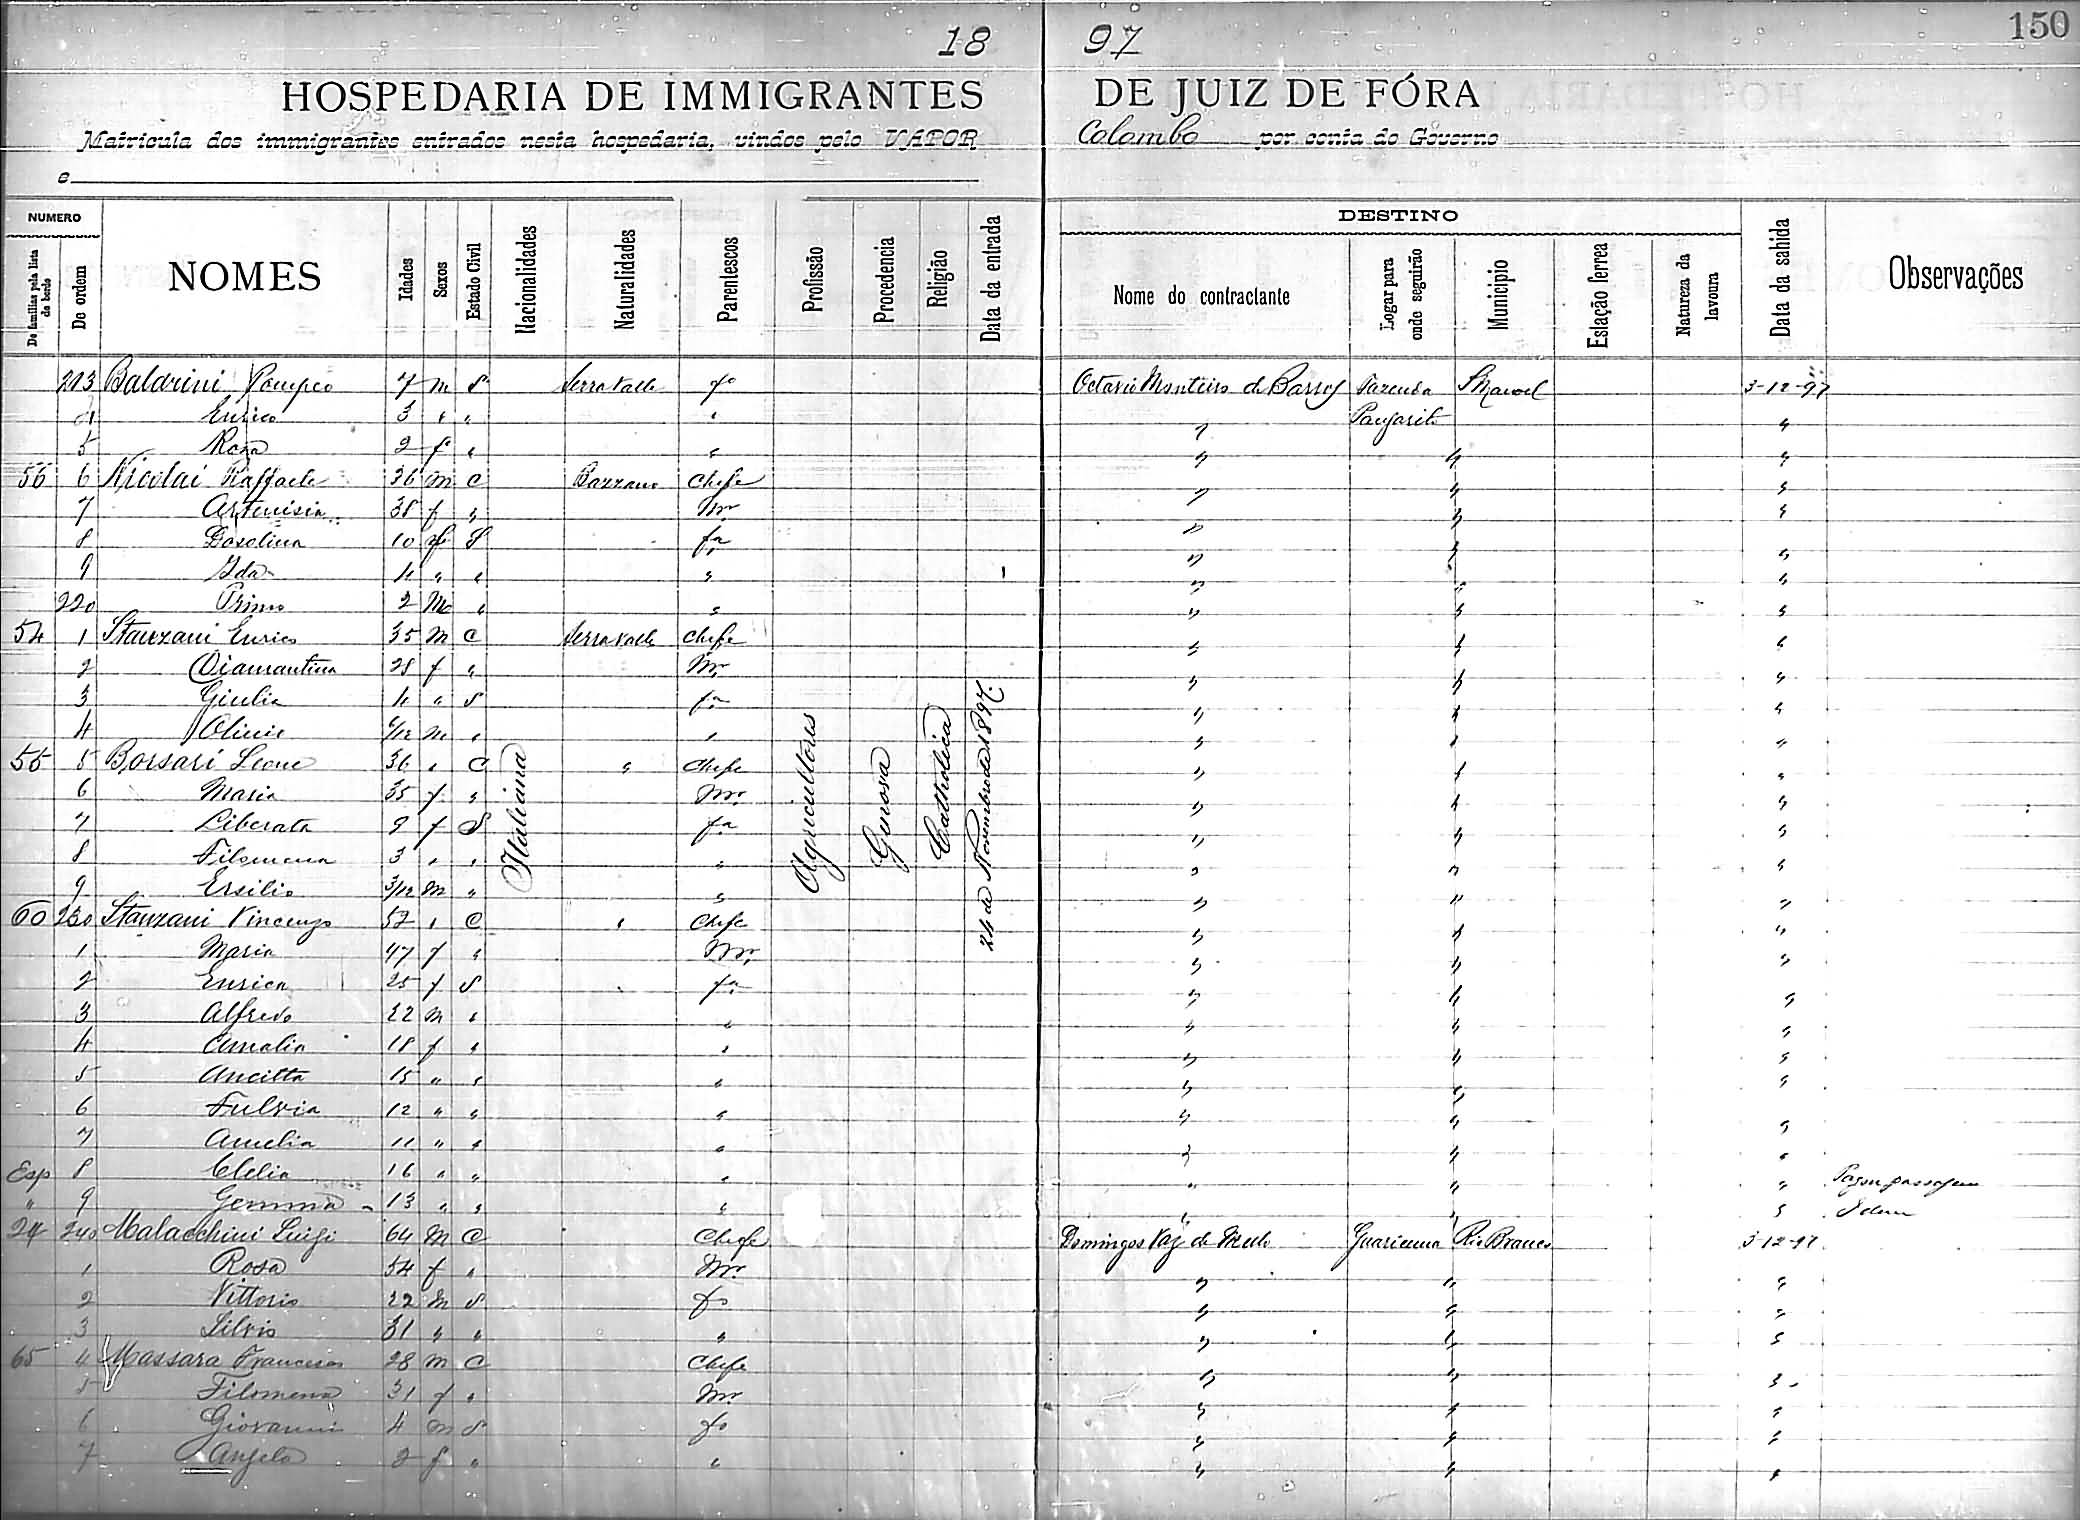 150
18 97
HOSPEDARIA DE IMMIGRANTES DE JUIZ DE FÓRA
Matricula dos immigrantes entrados nesta hospedaria, vindos pelo VAPOR Colombo por conta do Governo
e
NUMERO
De familias pela lista de bordo
De ordem
NOMES
Idades
Sexos
Estado Civil
Nacionalidades
Naturalidades
Parentescos
Profissão
Procedencia
Religião
Data da entrada
DESTINO
Nome do contractante
Logar para onde seguirão
Municipio
Estação ferrea
Natureza da lavoura
Data da sahida
Observações
213 Baldrini Pompeo 7 m S Serravalle fo Octavio Monteiro de Barros Fazenda S Manoel 3-12-97
Enrico 3 " " "
5 Rosa 2 f " "
56 6 Nicolai Raffaele 36 m C Bazzano Chefe " " "
7 Artemisia 38 f " Mr " " "
8 Gosolina 10 f S fa " " "
9 Ida 4 " " " " " "
220 Primo 2 M " " " " "
54 1 Stanzani Enrico 35 M C Serravalle Chefe " " "
2 Diamantina 28 f " Mr " " "
3 Giulia 4 " S fa " " "
4 Olinio M " " " " "
55 5 Borsari Leone 36 " C " Chefe " " "
6 Maria 35 f " Mr " " "
7 Liberata 9 f S fa " " "
8 Filomena 3 " " " " " "
9 Ersilio 3/12 M " " " " "
60 230 Stanzani Vincenzo 52 " C " Chefe " " "
1 Maria 47 f " Mr " " "
2 Enrica 25 f S fa " " "
3 Alfredo 22 M " " " " "
4 Amalia 18 f " " " " "
5 Ancitta 15 " " " " " "
6 Fulvia 12 " " " " " "
7 Amelia 11 " " " " " "
Esp 8 Clelia 16 " " " " " " Pagou passagem
" 9 Gemma 13 " " " " " " Idem
24 240 Malacchini Luigi 64 M C Chefe Domingos Vaz de Mello Guaricema Rio Branco 3-12-97
1 Rosa 54 f " Mr " " "
2 Vittorio 22 M S fo " " "
3 Silvio 31 " " " " " "
65 4 Massara Francesco 28 m C Chefe " " "
5 Filomena 31 f " Mr " " "
6 Giovanni 4 m S fo " " "
7 Angela 2 f " " " " "
Italiana
Agricultores
Genova
Catholica
24 de Novembro de 1897.